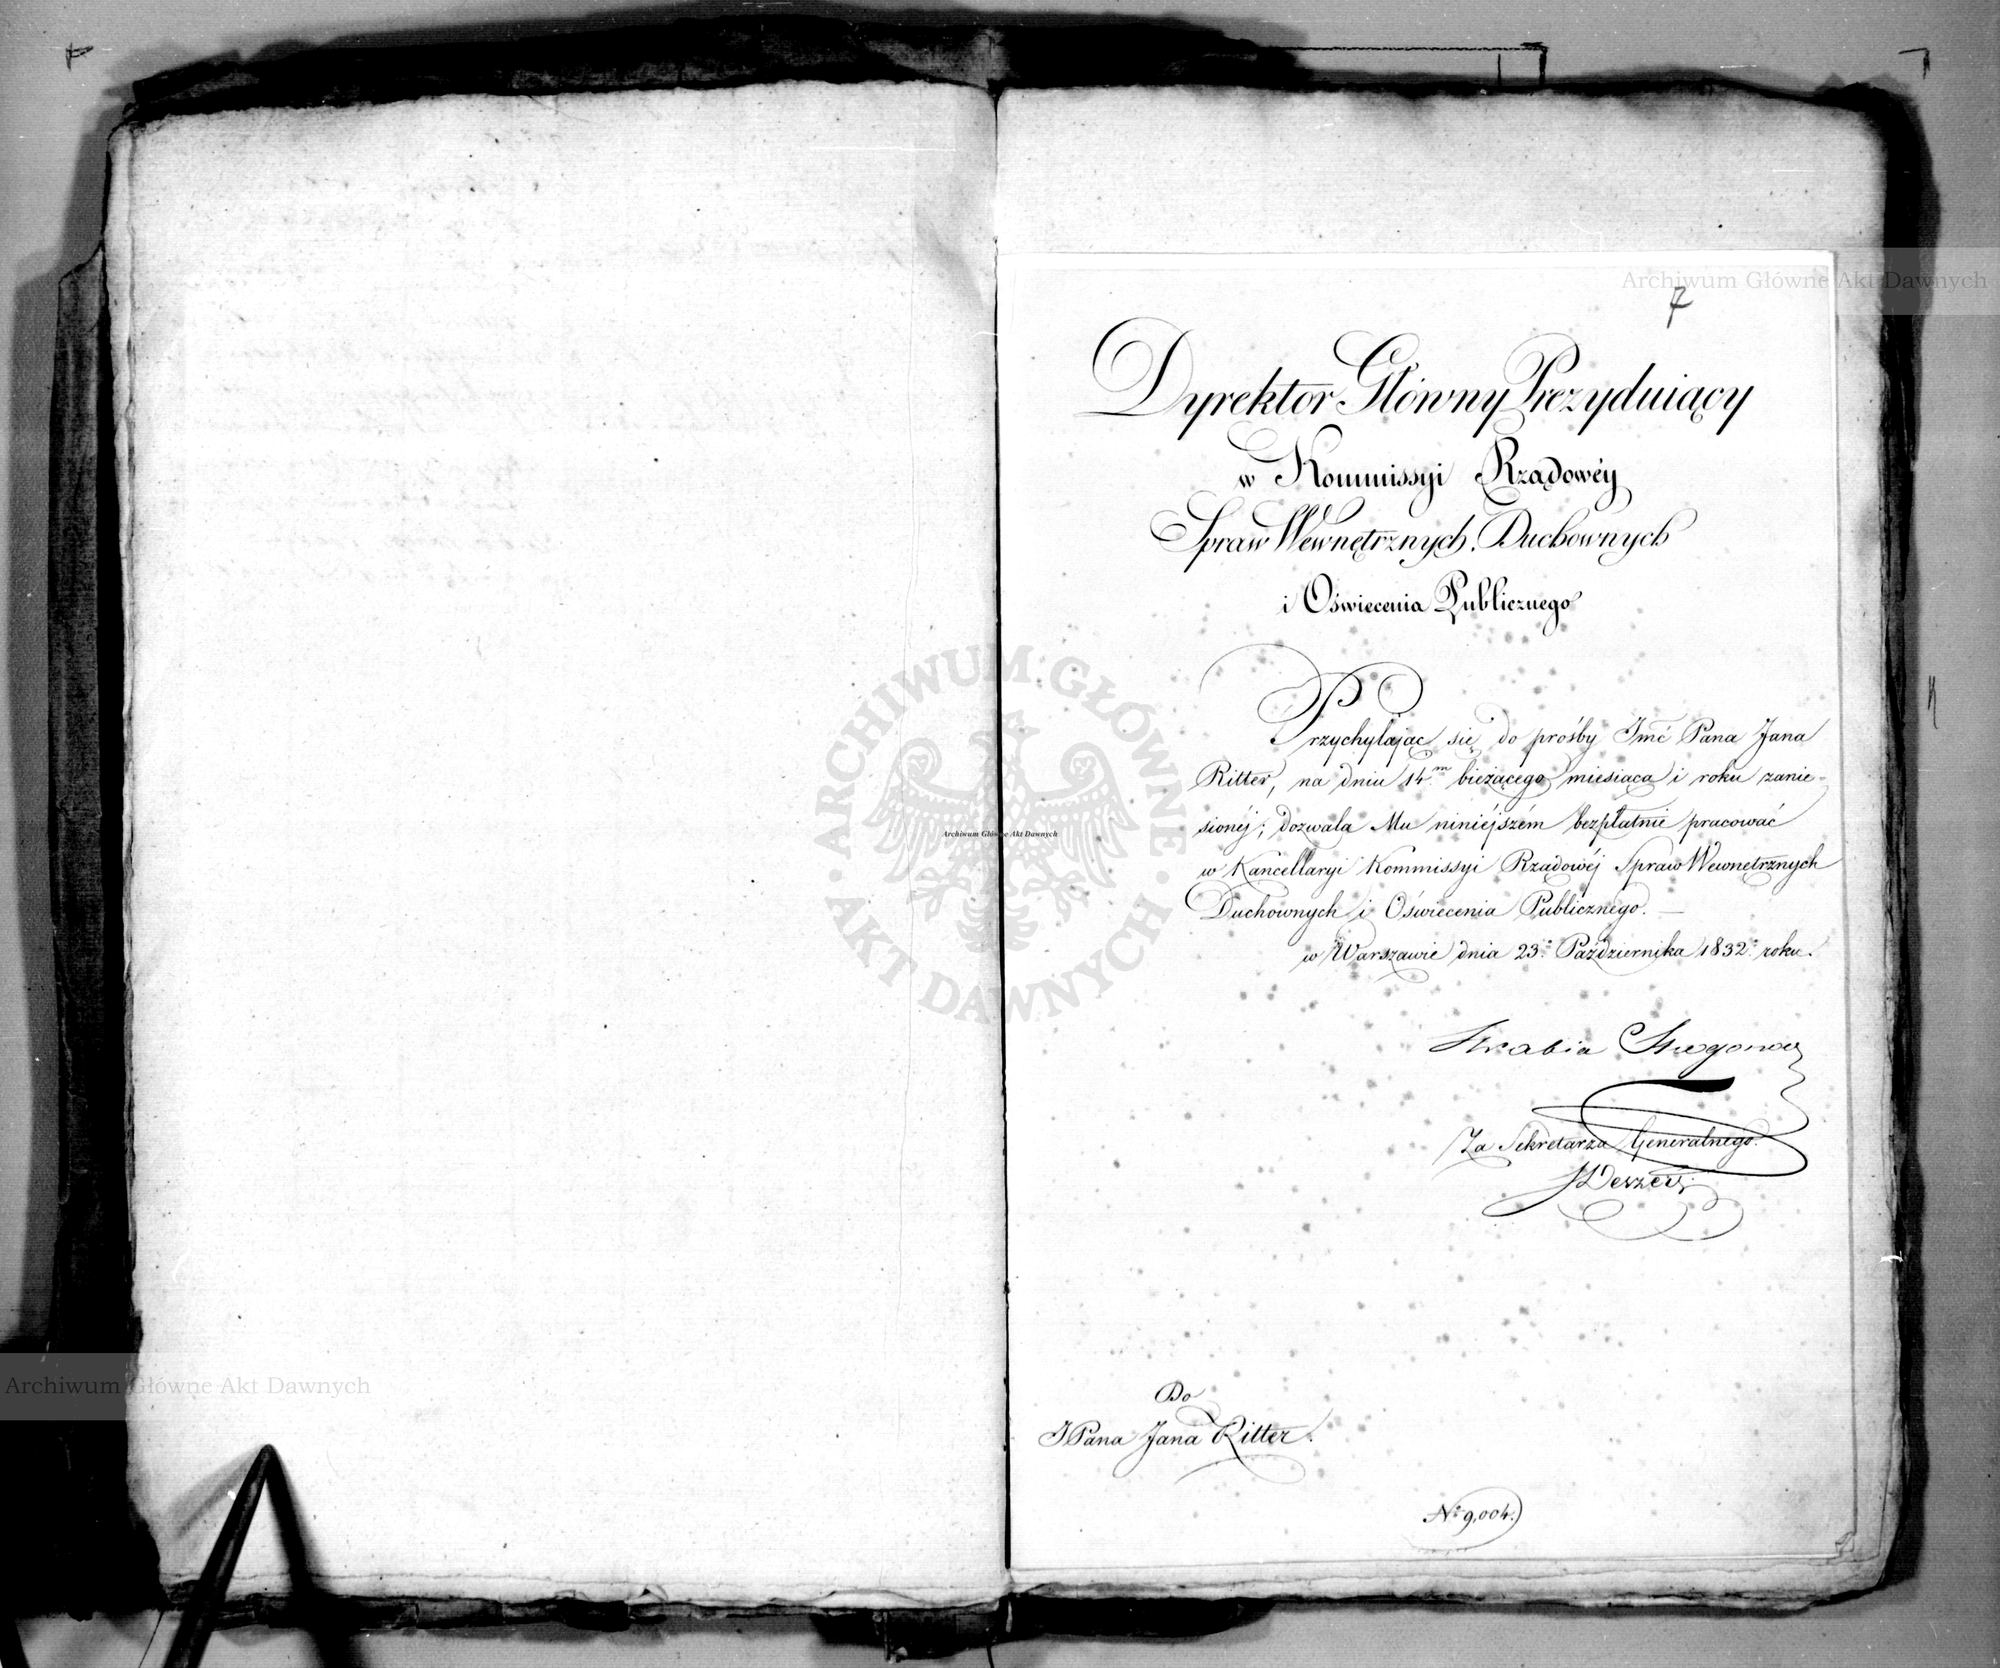 Archiwum Główne Akt Dawnych
7
Dyrektor Główny Prezyduiący
w Kommissyi Rządowéy
Spraw Wewnętrznych, Duchownych
i Oświecenia Publicznego
Przychylając się do prośby Jmć Pana Jana
Ritter, na dniu 14.m bieżącego miesiąca i roku zanie-
sionéj; dozwala Mu niniéjszém bezpłatnie pracować
w Kancellaryi Kommissyi Rządowéj Spraw Wewnętrznych
Duchownych i Oświecenia Publicznego. —
w Warszawie dnia 23.o Października 1832.o roku.
Hrabia Strogonow
Za Sekretarza Generalnego.
Do
JPana Jana Ritter.
No 9,004.)
ARCHIWUM GŁÓWNE · AKT DAWNYCH ·
Archiwum Główne Akt Dawnych
Archiwum Główne Akt Dawnych